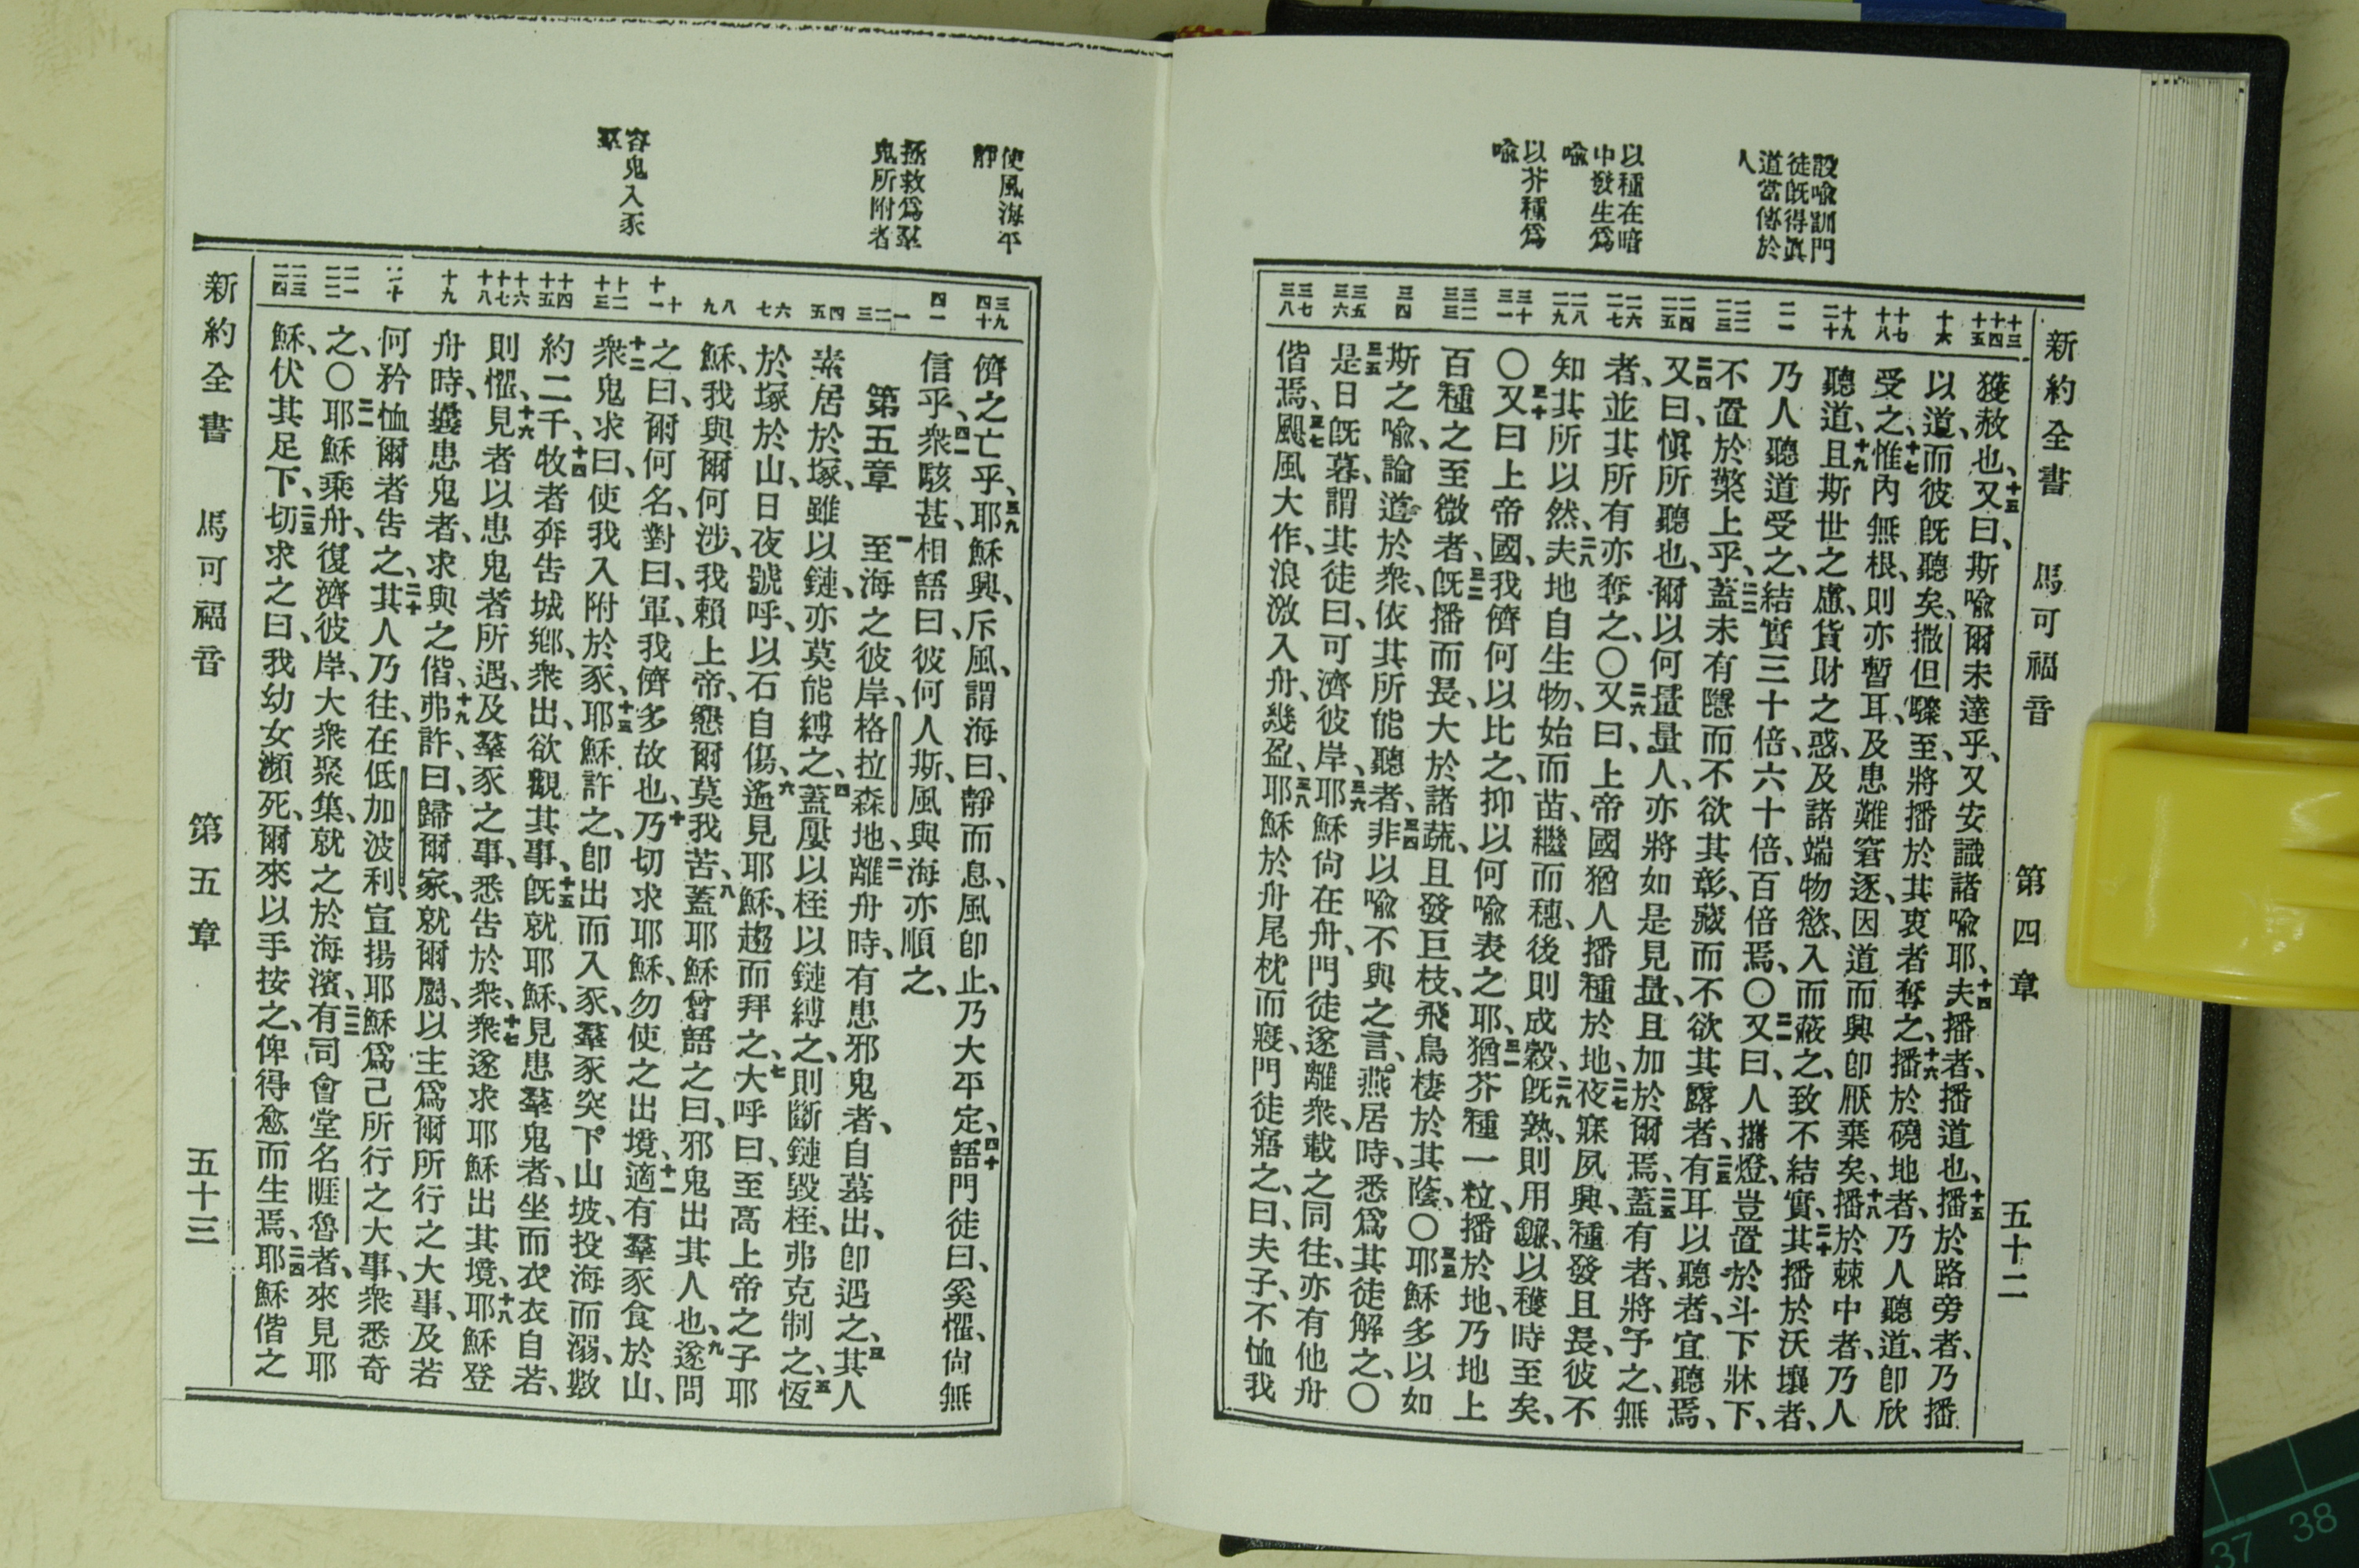 新約全書　馬可福音　第四章　五十二
設喩訓門
徒旣得眞
道當傳於
人
以種在暗
中發生爲
喩
以芥種爲
喩
十三
十四
十五
十六
十七
十八
十九
二十
二一
二二
二三
二四
二五
二六
二七
二八
二九
三十
三一
三二
三三
三四
三五
三六
三七
三八
獲赦也、十五又曰、斯喩爾未達乎、又安識諸喩耶、十四夫播者、播道也、十五播於路旁者、乃播
以道、而彼旣聽矣、撒但驟至、將播於其衷者奪之、十六播於磽地者、乃人聽道、卽欣
受之、十七惟內無根、則亦暫耳、及患難窘逐、因道而興、卽厭棄矣、十八播於棘中者、乃人
聽道、十九且斯世之慮、貨財之惑、及諸端物慾、入而蔽之、致不結實、二十其播於沃壤者、
乃人聽道受之、結實三十倍、六十倍、百倍焉、〇二一又曰、人攜燈、豈置於斗下牀下、
不置於檠上乎、二二蓋未有隱而不欲其彰、藏而不欲其露者、二三有耳以聽者、宜聽焉、
二四又曰、愼所聽也、爾以何量量人、亦將如是見量、且加於爾焉、二五蓋有者、將予之、無
者、並其所有亦奪之、〇二六又曰、上帝國猶人播種於地、二七夜寐夙興、種發且長、彼不
知其所以然、二八夫地自生物、始而苗、繼而穗、後則成穀、二九旣熟、則用鐮、以穫時至矣、
〇三十又曰、上帝國、我儕何以比之、抑以何喩表之耶、三一猶芥種一粒、播於地、乃地上
百種之至微者、三二旣播而長、大於諸蔬、且發巨枝、飛鳥棲於其蔭、〇三三耶穌多以如
斯之喩、論道於衆、依其所能聽者、三四非以喩不與之言、燕居時、悉爲其徒解之、〇
三五是日旣暮、謂其徒曰、可濟彼岸、三六耶穌尙在舟、門徒遂離衆、載之同往、亦有他舟
偕焉、三七颶風大作、浪激入舟、幾盈、三八耶穌於舟尾枕而寢、門徒寤之、曰、夫子、不恤我
使風海平
靜
拯救爲羣
鬼所附者
容鬼入豕
羣
三九
四十
四一
一
二
三
四
五
六
七
八
九
十
十一
十二
十三
十四
十五
十六
十七
十八
十九
二十
二一
二二
二三
二四
儕之亡乎、三九耶穌興、斥風、謂海曰、靜而息、風卽止、乃大平定、四十語門徒曰、奚懼、尙無
信乎、四一衆駭甚、相語曰、彼何人斯、風與海亦順之、
第五章　一至海之彼岸、格拉森地、二離舟時、有患邪鬼者、自墓出、卽遇之、三其人
素居於塚、雖以鏈、亦莫能縛之、四蓋屢以桎以鏈縛之、則斷鏈毀桎、弗克制之、五恆
於塚於山、日夜號呼、以石自傷、六遙見耶穌、趨而拜之、七大呼曰、至高上帝之子耶
穌、我與爾何涉、我賴上帝、懇爾莫我苦、八蓋耶穌曾語之曰、邪鬼出其人也、九遂問
之曰、爾何名、對曰、軍、我儕多故也、十乃切求耶穌、勿使之出境、十一適有羣豕食於山、
十二衆鬼求曰、使我入附於豕、十三耶穌許之、卽出而入豕、羣豕突下山坡、投海而溺、數
約二千、十四牧者奔告城鄕、衆出、欲觀其事、十五旣就耶穌、見患羣鬼者、坐而衣衣自若、
則懼、十六見者以患鬼者所遇、及羣豕之事、悉告於衆、十七衆遂求耶穌出其境、十八耶穌登
舟時、曩患鬼者、求與之偕、十九弗許、曰、歸爾家、就爾屬、以主爲爾所行之大事、及若
何矜恤爾者告之、二十其人乃往、在低加波利、宣揚耶穌爲己所行之大事、衆悉奇
之、〇二一耶穌乘舟、復濟彼岸、大衆聚集、就之於海濱、二二有司會堂名睚魯者、來見耶
穌、伏其足下、二三切求之曰、我幼女瀕死、爾來以手按之、俾得愈而生焉、二四耶穌偕之
新約全書　馬可福音　第五章　五十三
37
38